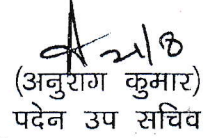 (अनुराग कुमार)
पदेन उप सचिव